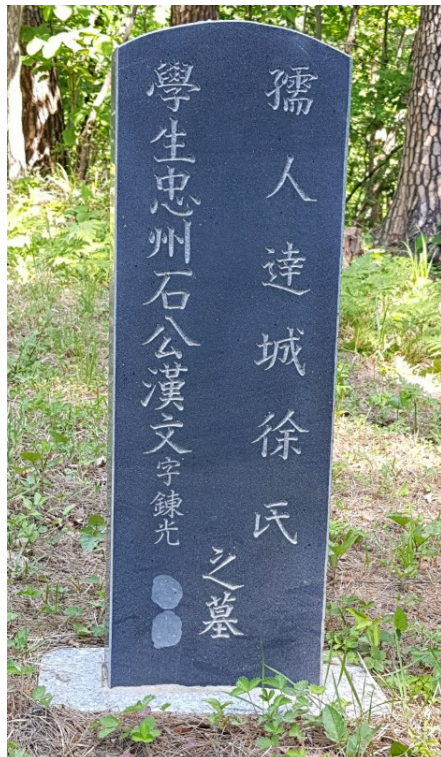 孺人逹城徐氏
學生忠州石公漢文字鍊光
之墓